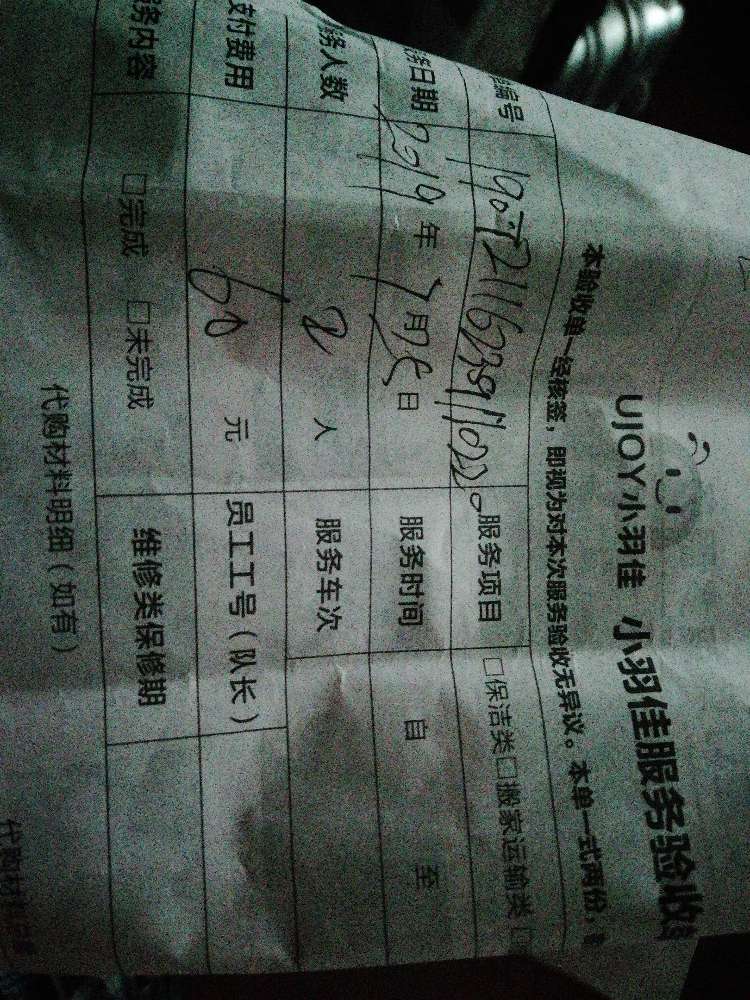 UJOY小羽佳 小羽佳服务验收
本验收单一经核签，即视为对本次服务验收无异议。本单一式两份，
编号 服务项目 □保洁类□搬家运输类□
日期 2019年7月25日 服务时间 自 至
务人数 2人 服务车次
支付费用 60元 员工工号（队长）
务内容 □完成 □未完成 维修类保修期
代购材料明细（如有）